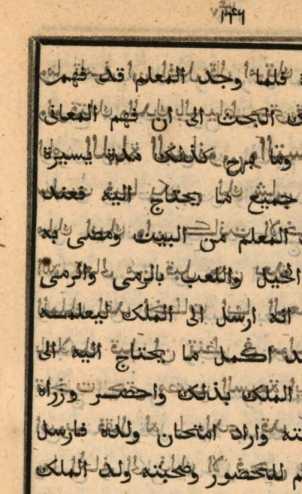 ١٢٤٦
فلما وجد المعلم قد فهمت
البحث الى ان فهم المعانى
وما برح كذلك مدة يسيرة
جميع ما يحتاج اليه فعند
المعلم من البيت ومضى به
الخيل واللعب بالرمى والرمى
انه ارسل الى الملك ليعلمه
اكمل ما يحتاج اليه الى
الملك بذلك واحضر وزراه
واراد امتحان ولده فارسل
للحضور وصحبته ولد الملك